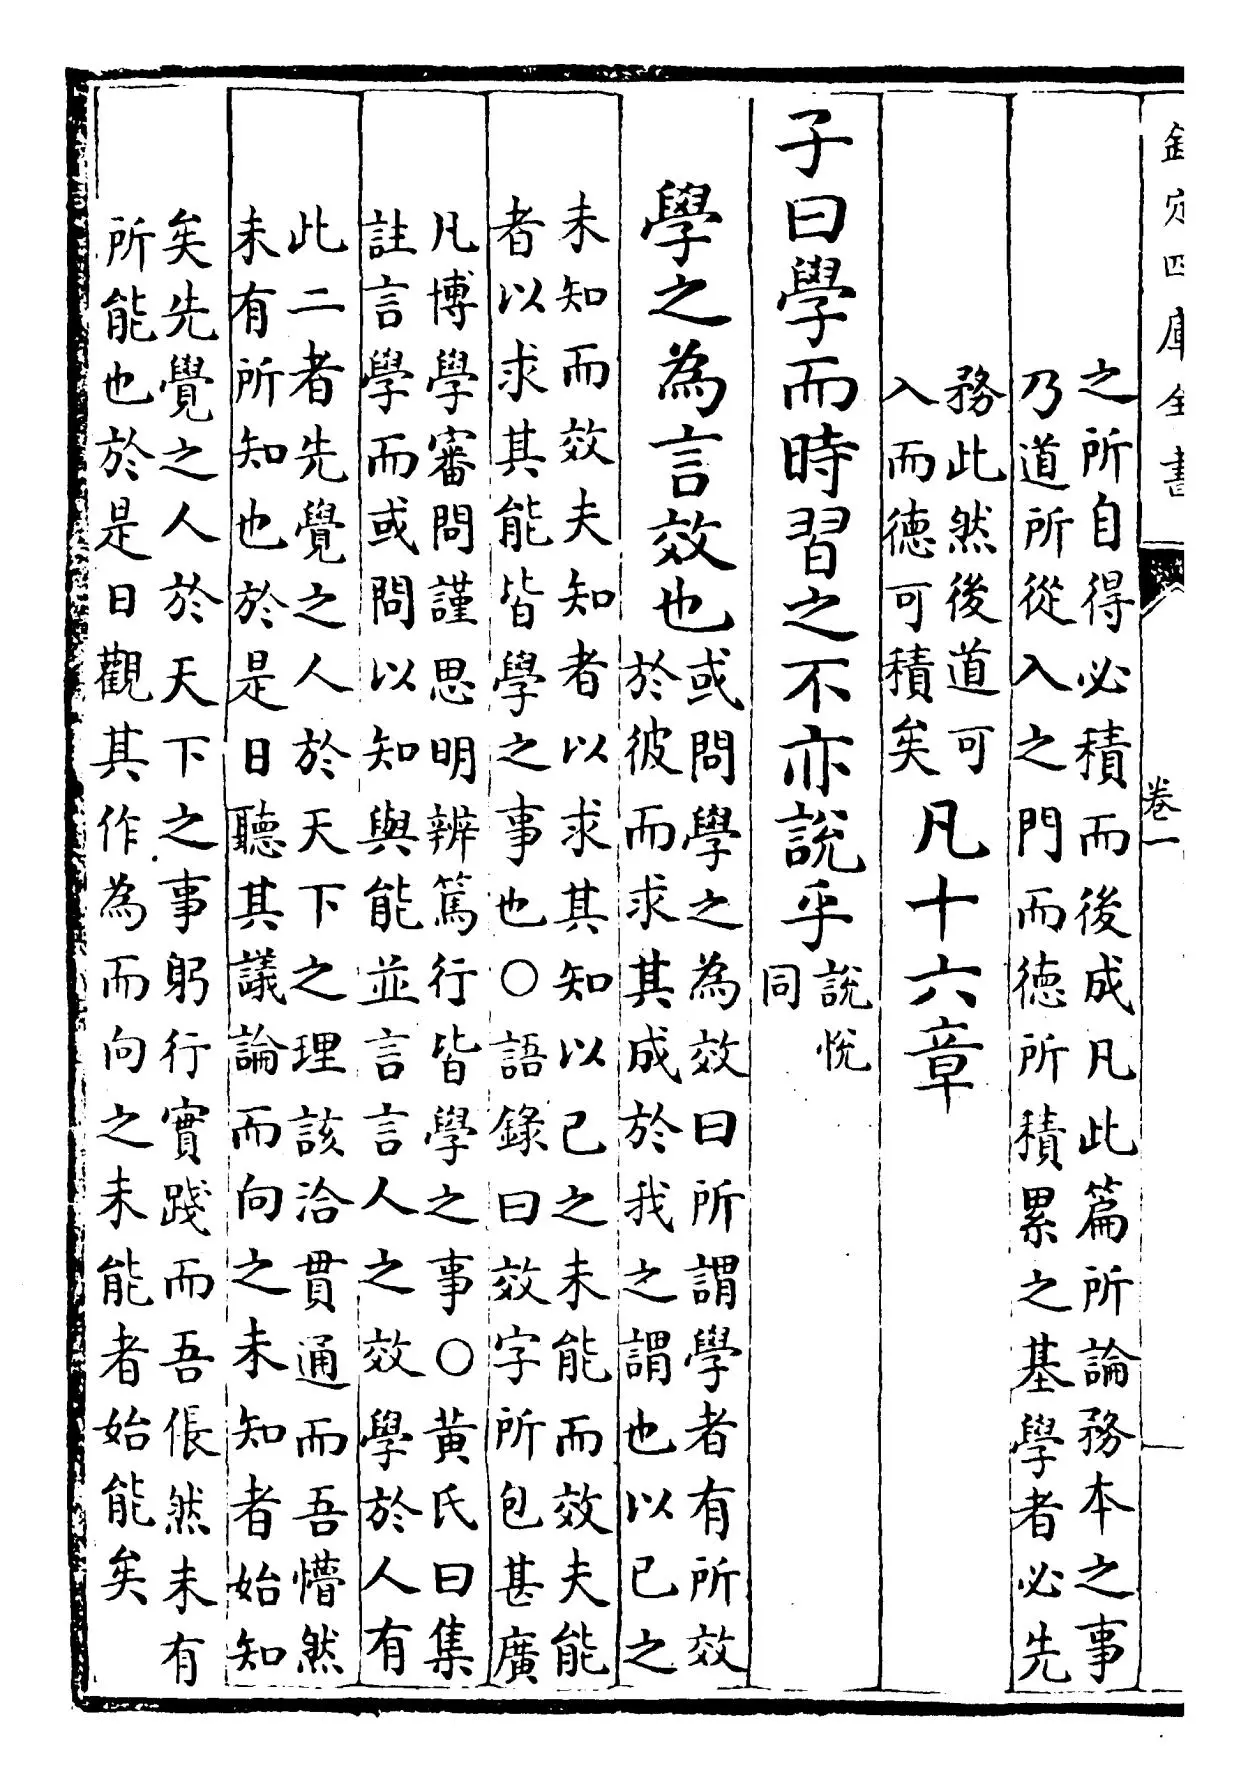 欽定四庫全書
卷一
之所自得必積而後成凡此篇所論務本之事
乃道所從入之門而德所積累之基學者必先
務此然後道可
入而德可積矣
凡十六章
子曰學而時習之不亦說乎
說悅
同
學之為言效也
或問學之為效曰所謂學者有所效
於彼而求其成於我之謂也以已之
未知而效夫知者以求其知以已之未能而效夫能
者以求其能皆學之事也○語錄曰效字所包甚廣
凡博學審問謹思明辨篤行皆學之事○黃氏曰集
註言學而或問以知與能並言言人之效學於人有
此二者先覺之人於天下之理該洽貫通而吾懵然
未有所知也於是日聽其議論而向之未知者始知
矣先覺之人於天下之事躬行實踐而吾倀然未有
所能也於是日觀其作為而向之未能者始能矣